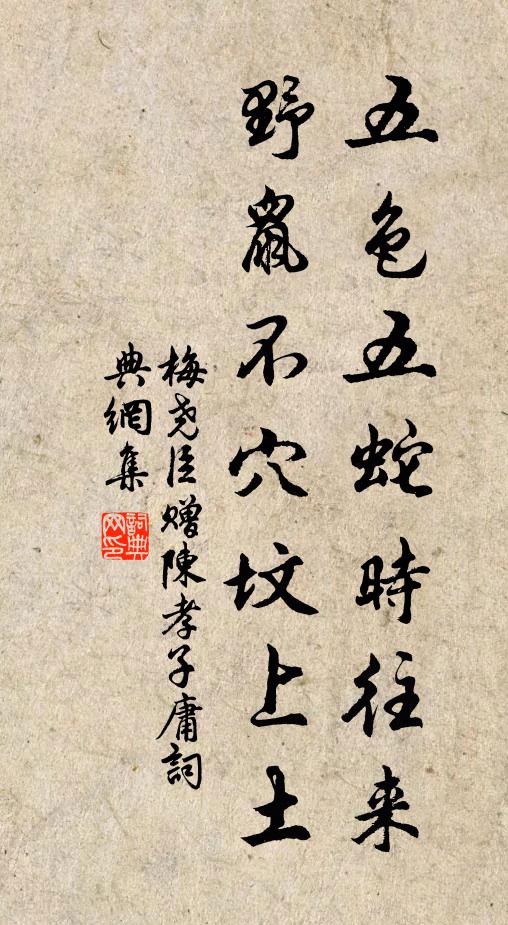 五色五蛇時往来
野鼠不穴坟上土
梅尧臣赠陳孝子庸詞
典網集
詞典网印